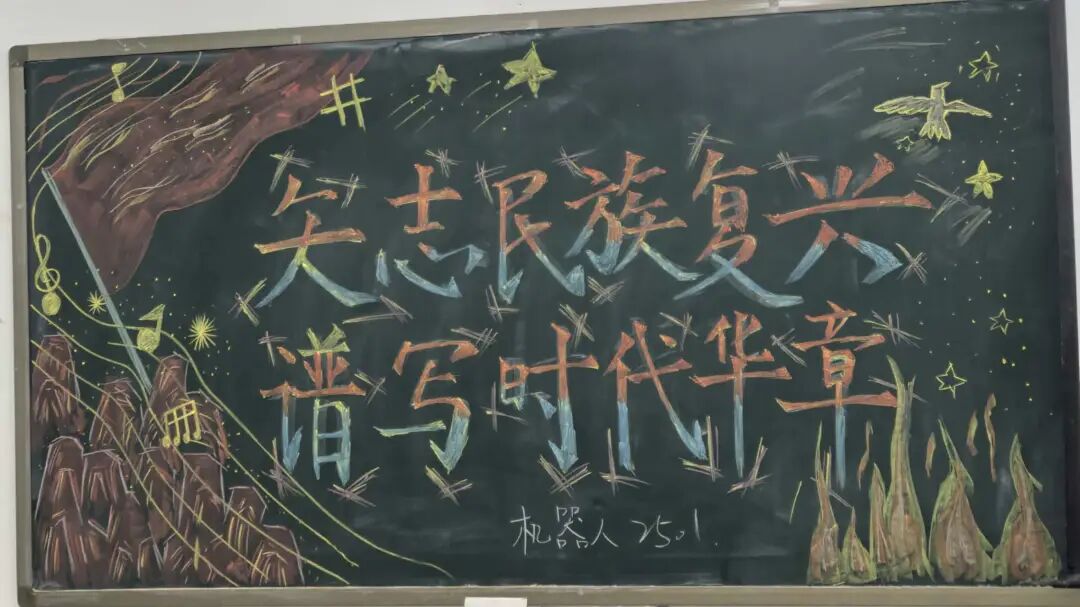 矢志民族复兴
谱写时代华章
机器人2501.